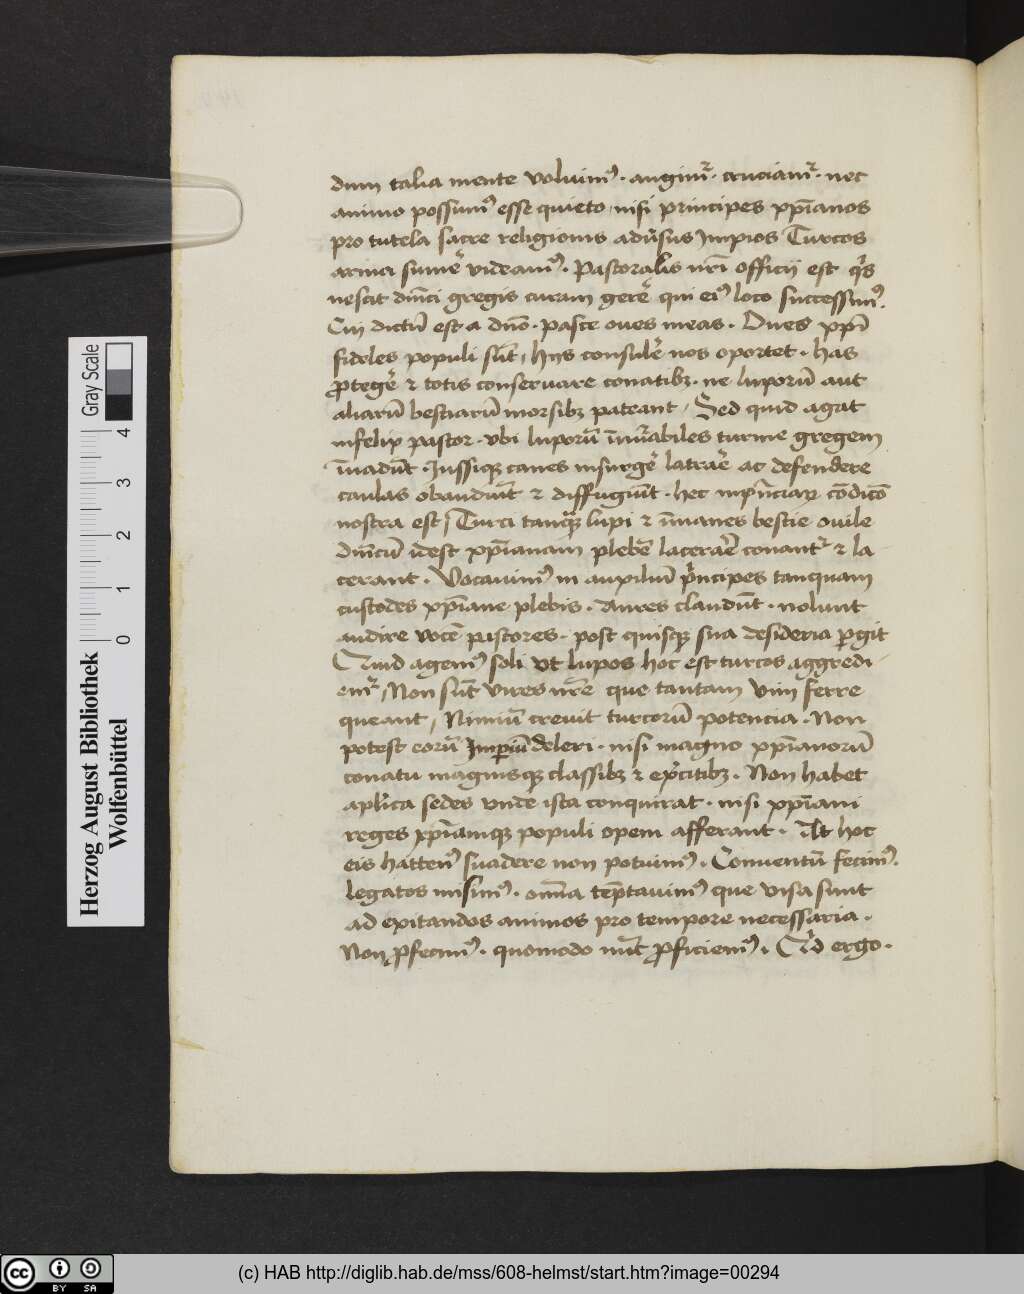 dum talia mente voluim⁹ · angim̃ · cruciam̃ · nec
animo possum⁹ esse quieto · nisi principes xp̄ianos
pro tutela sacre religionis adũsus Impios Turcos
arma sumẽ videam⁹ · Pastoralis nr̄i officij est qͥs
nescit dn̄ici gregis curam gerẽ qui ei⁹ loco successim⁹ ·
Cui dictū est a dn̄o · pasce oues meas · Oues xp̄i
fideles populi sūt / hijs consulẽ nos oportet · has
ꝓtegẽ ⁊ totis conseruare conatibꝫ · ne luporū aut
aliarū bestiarū morsibꝫ pateant / Sed quid agat
infelix pastor · vbi luporū īnũabiles turme gregem
īuadūt · Iussiqꝫ canes insurgẽ latrãe ac defendere
caulas obaudiūt ⁊ diffugiūt · hec inp̄nciaꝝ cōdicō
nostra est / Turci tanqᷓꝫ lupi ⁊ īmanes bestie ouile
dn̄icū idest xp̄ianam plebē lacerãe conant̃ ⁊ la
cerant · Vocauim⁹ in auxiliū pͥncipes tanquam
custodes xp̄iane plebis · Aures claudūt · nolunt
audire vocē pastores · post quisqꝫ sua desideria ꝑgit
Quid agem⁹ soli vt lupos hoc est turcos aggredi
em̃ / Non sūt vires nr̄e que tantam vim ferre
queant / Nimiū creuit turcorū potencia · Non
potest eorū Imꝑiū deleri · nisi magno xp̄ianorū
conatu magnisqꝫ classibꝫ ⁊ exͨitibꝫ · Non habet
apl̓ica sedes vnde ista conquirat · nisi xp̄iani
reges xp̄ianiqꝫ populi opem afferant · At hoc
eis hatten⁹ suadere non potuim⁹ · Conuentū fecim⁹ ·
legatos misim⁹ · om̄ia tēptauim⁹ que visa sunt
ad excitandos animos pro tempore necessaria ·
Non ꝓfecim⁹ · quomodo nūc ꝓficiem⁹ · Qͥd ergo ·
Gray Scale
0 1 2 3 4
Herzog August Bibliothek
Wolfenbüttel
BY SA
(c) HAB http://diglib.hab.de/mss/608-helmst/start.htm?image=00294